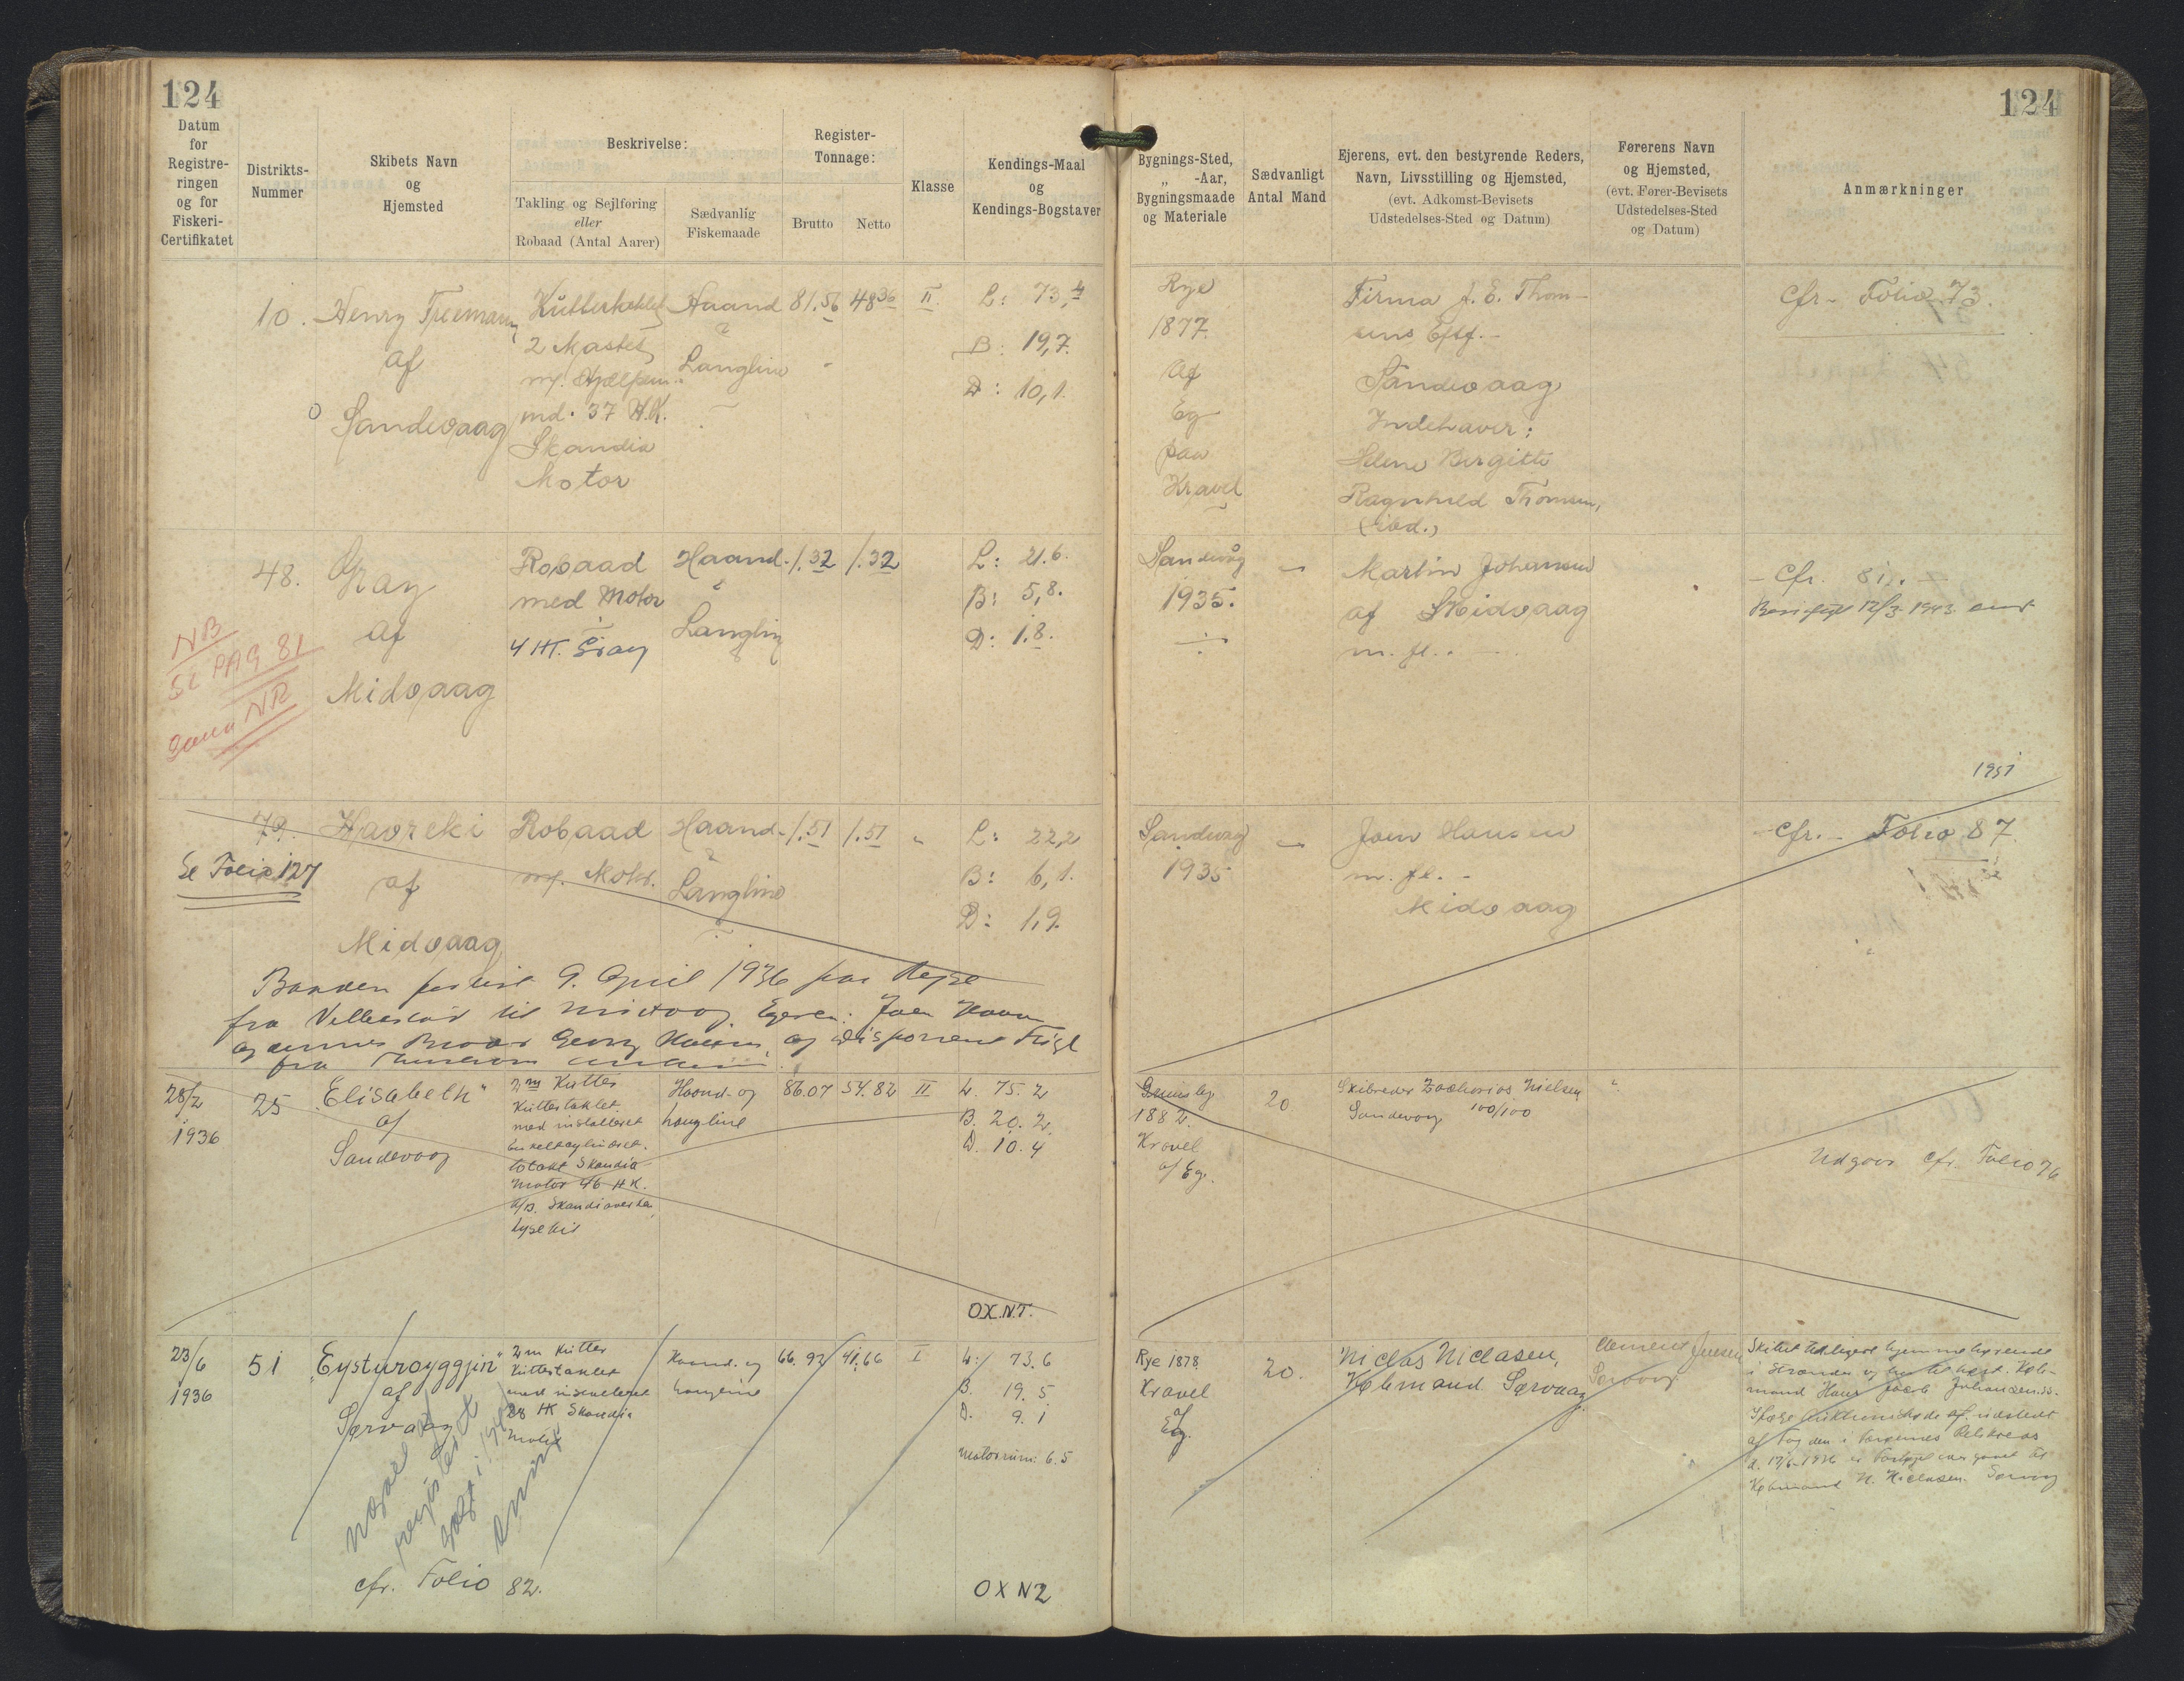 124
124
Datum
for
Registre-
ringen
og for
Fiskeri-
Certifikatet
Distrikts-
Nummer
Skibets Navn
og
Hjemsted
Beskrivelse:
Takling og Sejlføring
eller
Robaad (Antal Aarer)
Sædvanlig
Fiskemaade
Register-
Tonnage:
Brutto
Netto
Klasse
Kendings-Maal
og
Kendings-Bogstaver
Bygnings-Sted,
„ -Aar,
Bygningsmaade
og Materiale
Sædvanligt
Antal Mand
Ejerens, evt. den bestyrende Reders,
Navn, Livsstilling og Hjemsted,
(evt. Adkomst-Bevisets
Udstedelses-Sted og Datum)
Førerens Navn
og Hjemsted,
(evt. Fører-Bevisets
Udstedelses-Sted
og Datum)
Anmærkninger
10.
Henry Freemann
af
Sandevaag
Kuttertaklet
2 Mastet
m/. Hjælpem.
md. 37 H.K.
Skandia
Motor
Haand
Langline
81.56
48 36
II.
L: 73,4
B: 19,7.
D: 10,1.
Rye
1877.
Af
Eg
paa
Kravel
Firma J. E. Thom-
sens Eftf.-
Sandevaag
Indehaver:
Helene Birgitte
Ragnhild Thomsen,
cfr. Folio 73.
48.
Gray
af
Midvaag
NB
Se PAG 81
Samme NR
Robaad
med Motor
4 HK. Gray
Haand-
Langline
1.32
1.32
L: 21.6.
B: 5,8.
D: 1.8.
Sandevåg
1935.
Martin Johansen
af Midvaag
m. fl.
- Cfr. 81.
12/3 1943
1951
79.
Havreki
af
Midvaag
Se Folio 127
Robaad
m/. Motor.
Haand-
Langline
1.51
1.51
L: 22,2
B: 6,1.
D: 1,9.
Sandevag
1935
Joen Hansen
m. fl. -
Midvaag
cfr. - Folio 87.
Baaden forlist 9. April 1936 paa Rejse
fra Velbestad til Midvaag. Ejeren: Joen Hansen
og dennes Broder Georg Hansen og
28/2
1936
25
„Elisabeth“
af
Sandevaag
2 m Kutter
Kuttertaklet
med installeret
enkeltcylindret
totakt Skandia
Motor 46 H.K.
A/B. Skandiaverken
Lysekil
Haand- og
Langline
86.07
54.82
II
L. 75.2
B. 20.2
D. 10.4
OX.N.T.
Grimsby
1882
Kravel
af Eg.
20
Skibsreder Zacharias Nielsen
Sandevaag 100/100
Udgaar cfr. Folio 76
23/6
1936
51
„Eysturoyggjin“
af
Sørvaag
2 m Kutter
Kuttertaklet
med installeret
HK Skandia
Motor
Haand- og
Langline
66.92
41.66
I
L: 73.6
B. 19.5
D. 9.1
Motorrum: 6.5
cfr. Folio 82.
OXNZ
Rye 1878
Kravel
af
Eg.
20.
Niclas Niclasen,
Købmand. Sørvaag
Clement Joensen
Sørvaag
Skibet tidligere hjemmehørende
i Strander og har tilhørt Køb-
mand Hans Jacob Johannesen.
Ifølge Auktionsskøde af udstedt
af Fogden i Færøernes Retskreds
d. 17/6-1936 er
Købmand N. Niclasen. Sørvaag